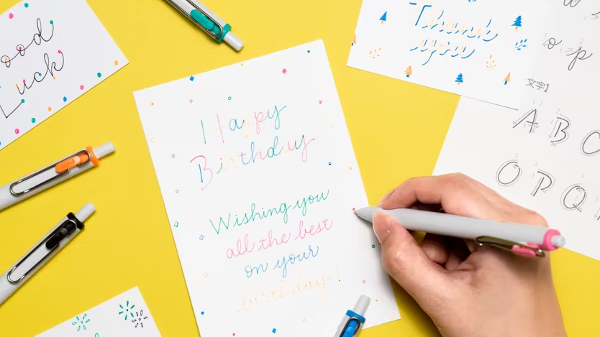 Good
Luck
Happy
Birthday
Wishing you
all the best
on your
Thank
you
文字】
A B C
O P Q